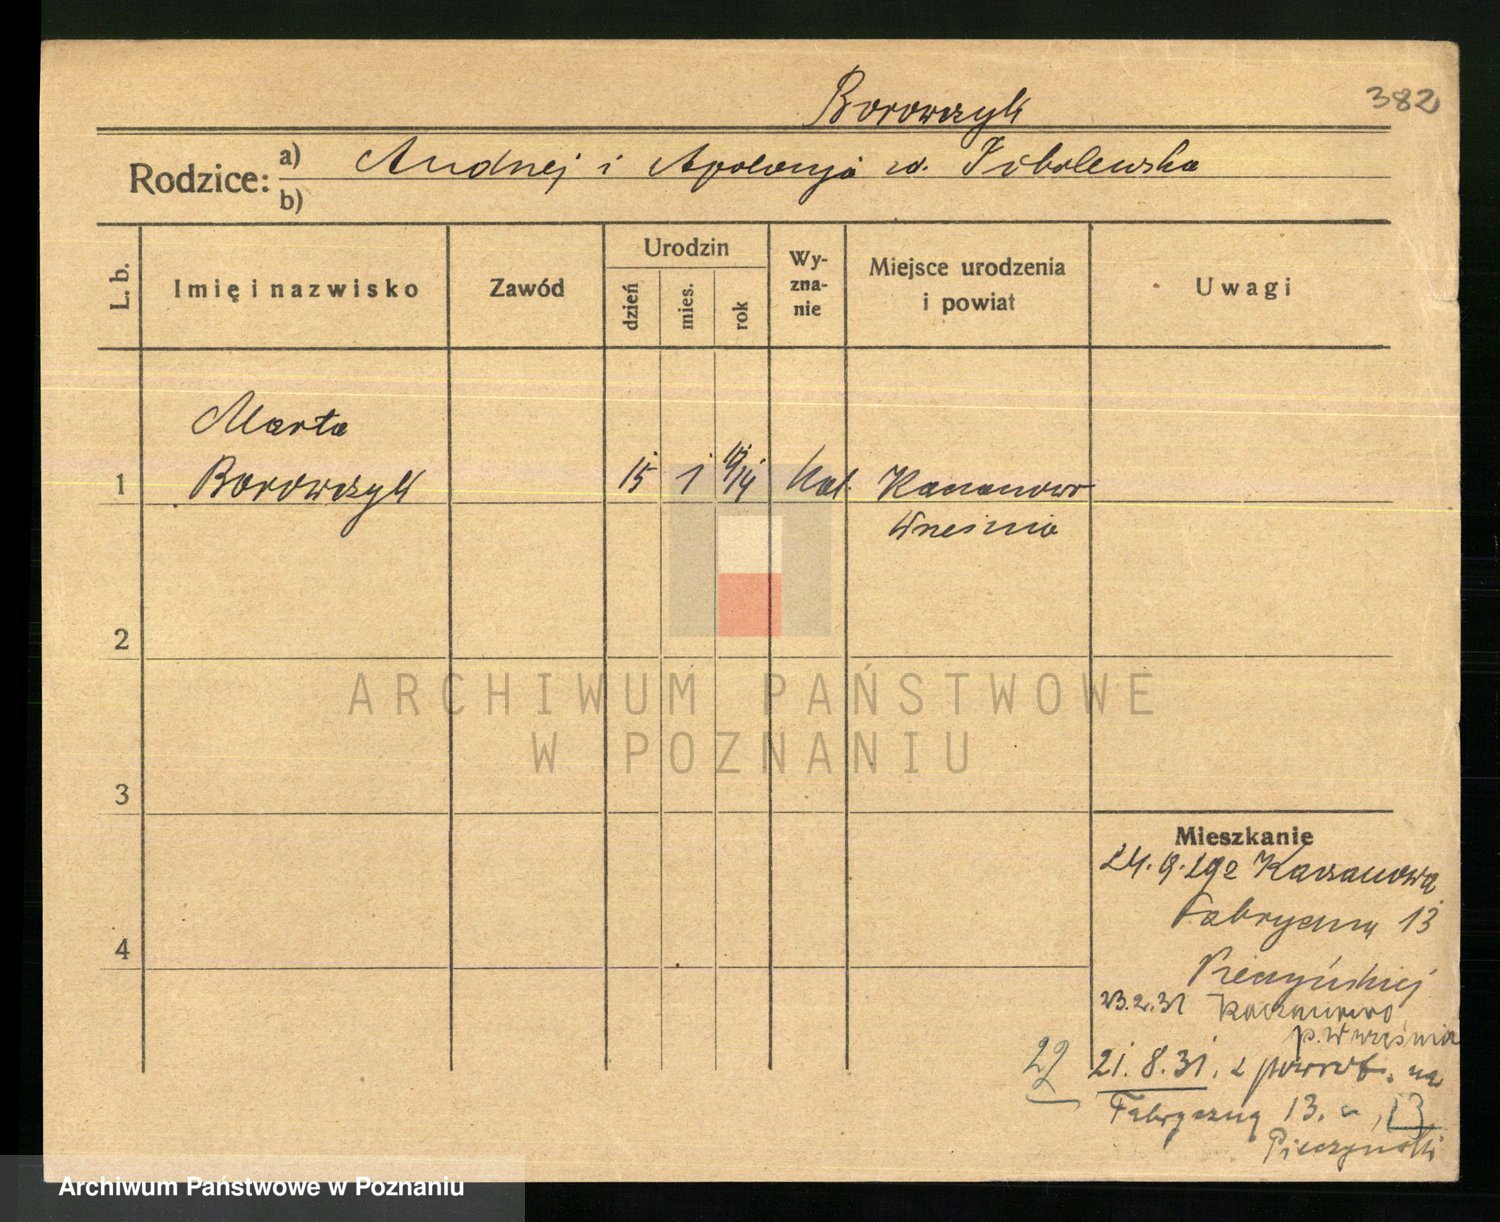 Borowczyk
382
Rodzice: a) Andrzej i Apolonja zd. Sobolewska
b)
L. b.
Imię i nazwisko
Zawód
Urodzin
dzień
mies.
rok
Wy-
zna-
nie
Miejsce urodzenia
i powiat
Uwagi
Marta
1 Borowczyk 15 1 1914 kat. Kaczanowo
Września
2
ARCHIWUM PAŃSTWOWE
W POZNANIU
3
Mieszkanie
24.9.29 z Kaczanowa
Fabryczną 13
4
Pieczyńskiej
23.2.31 Kaczanowo
p. Września
22 21.8.31. z powrot. na
Fabryczną 13. 13
Pieczyński
Archiwum Państwowe w Poznaniu